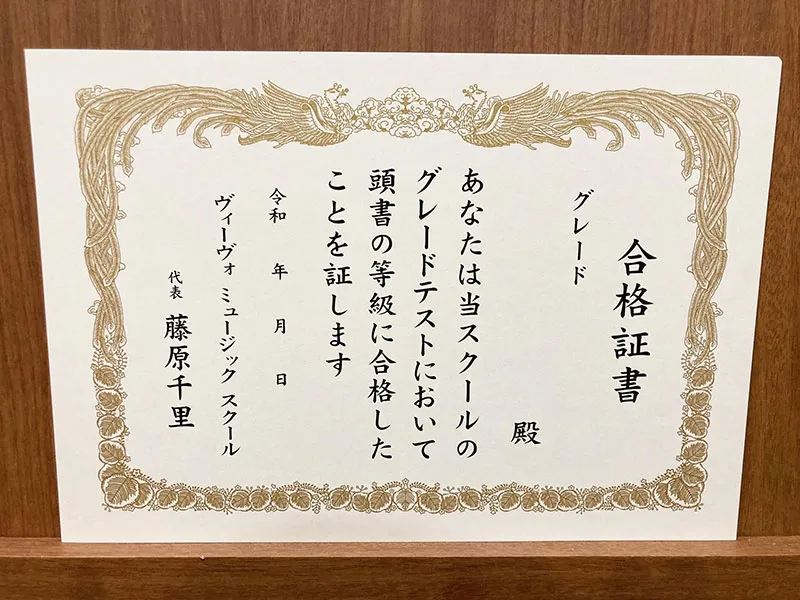 合格証書
グレード
殿
あなたは当スクールの
グレードテストにおいて
頭書の等級に合格した
ことを証します
令和 年 月 日
ヴィーヴォ ミュージック スクール
代表 藤原千里